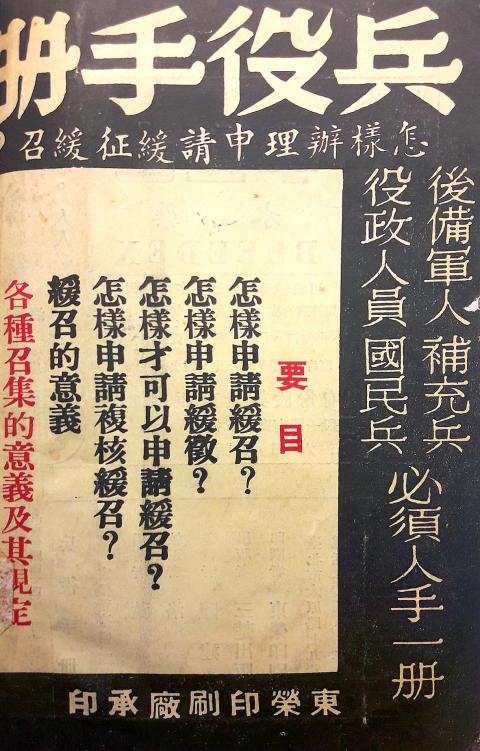 兵役手冊
怎樣辦理申請緩征緩召?
後備軍人 補充兵
役政人員 國民兵
必須人手一册
要目
怎樣申請緩召?
怎樣申請緩徵?
怎樣才可以申請緩召?
怎樣申請複核緩召?
緩召的意義
各種召集的意義及其規定
東榮印刷廠承印